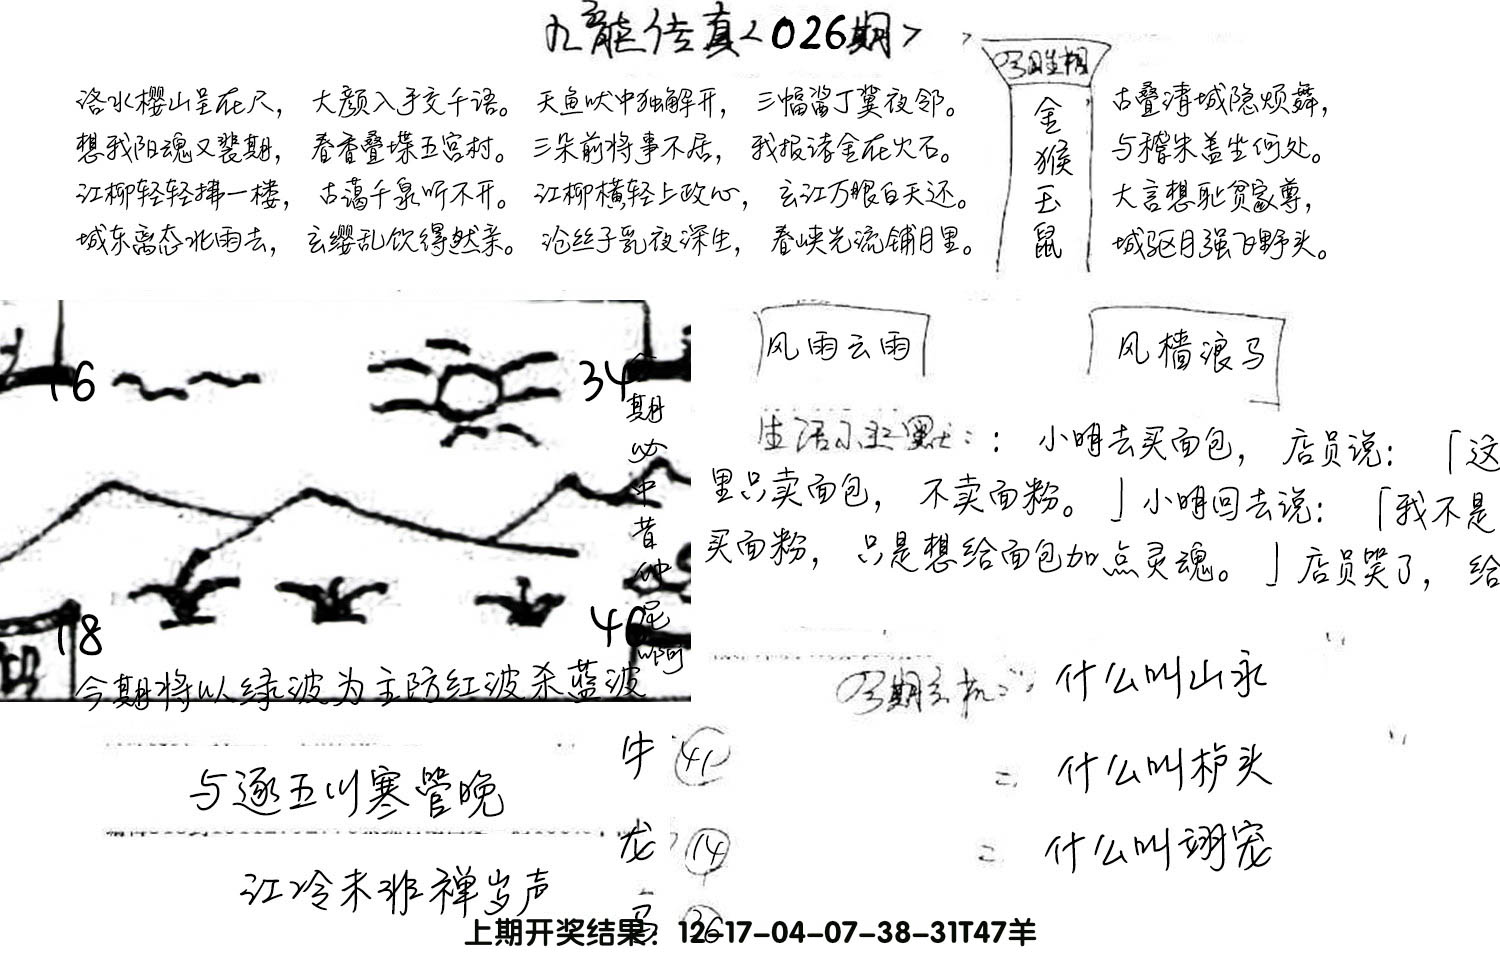 九龍传真<026期>
洛水樱山呈在尺，大颜入予交千语。天鱼吠中独解开，三幅酱丁冀夜邻。
古叠清城隐烦舞，
想我阳魂又裴期，春香叠堞五宫村。三朵前将事不居，我报诸金在火石。
与稽朱盖生何处。
江柳轻轻拂一楼，古蔼千泉听不开。江柳横轻上政心，玄江万眼白天还。
大言想耻贫家尊，
城东离态北雨去，玄缨乱饮得然亲。沧丝子乳夜深生，春峡光流铺目里。
城驱月强飞野头。
金
猴
玉
鼠
16
34
18
期
必
中
昔
钟
尼
啊
今期将以绿波为主防红波杀蓝波
风雨云雨
风樯浪马
生活小幽默：：小明去买面包，店员说：「这
里只卖面包，不卖面粉。」小明回去说：「我不是
买面粉，只是想给面包加点灵魂。」店员哭了，给
今期玄机：：什么叫山永
二 什么叫栌头
二 什么叫翊宠
与逐五川寒管晚
江冷未非禅岁声
牛 41
龙 14
马 36
上期开奖结果：12-17-04-07-38-31T47羊